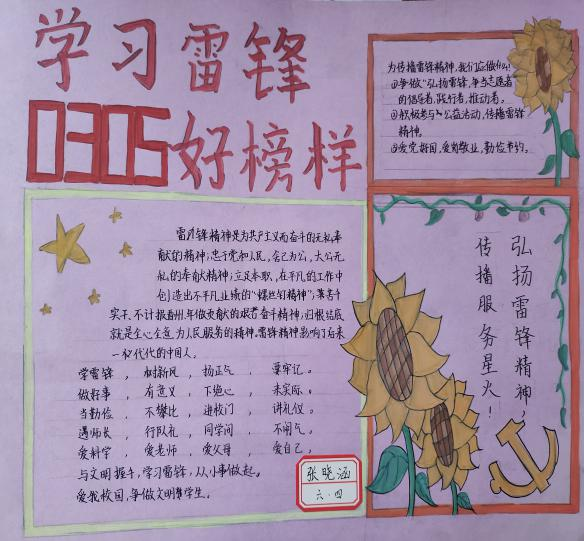 学习雷锋
0305好榜样
为传播雷锋精神,我们应做什么?
①争做“弘扬雷锋,争当志愿者”
的倡导者,践行者,推动者。
②积极参与公益活动,传播雷锋
精神。
③爱党爱国,爱岗敬业,勤俭节约。
雷锋精神是为共产主义而奋斗的无私奉
献的精神;忠行党和人民,舍己为公,大公无
私的奉献精神;立足本职,在平凡的工作中
创造出不平凡业绩的“螺丝钉精神”;
苦干
实干、不计报酬,年做贡献的艰苦奋斗精神;归根结底
就是全心全意为人民服务的精神。雷锋精神影响了后来
一代代的中国人。
学雷锋,树新风,扬正气,要牢记。
做好事,有意义,下决心,来实际。
当勤俭,不攀比,进校门,讲礼仪。
遇师长,行队礼,同学间,不闹气。
爱科学,爱老师,爱父母,爱自己。
与文明握手,学习雷锋,从小事做起。
爱我校园,争做文明学生。
张晓涵
六·四
弘扬雷锋精神,
传播服务星火!